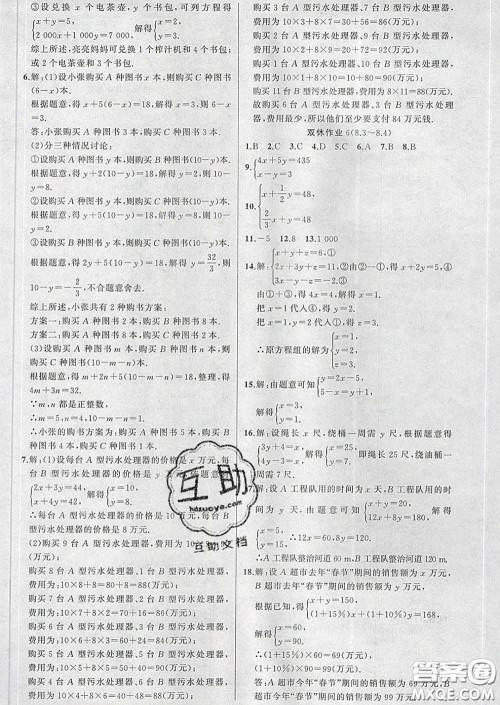 ③设兑换 x 个电茶壶，y 个书包，可列方程得
{2 000x+
1 000y+
综上所述，亮亮妈妈可兑换 1 个榨汁机和 4 个书包；
或 2 个电茶壶和 3 个书包.
6.解：(1)设小张购买 A 种图书 x 本，则购买 C 种图书
(6-x)本.
根据题意，得 x+5(6-x)=18，解得 x=3，
则 6-x=3.
答：小张购买 A 种图书 3 本，购买 C 种图书 3 本.
(2)分三种情况讨论：
①设购买 A 种图书 y 本，则购买 C 种图书(10-y)本.
根据题意，得 y+5(10-y)=18，解得 y=8，
则 10-y=2.
②设购买 A 种图书 y 本，则购买 B 种图书(10-y)本.
根据题意，得 y+2(10-y)=18，解得 y=2，
则 10-y=8.
③设购买 B 种图书 y 本，则购买 C 种图书(10-y)本.
根据题意，得 2y+5(10-y)=18，解得 y=32/3，
则 10-y=-2/3，不合题意舍去.
综上所述，小张共有 2 种购书方案：
方案一：购买 A 种图书 8 本，购买 C 种图书 2 本.
方案二：购买 A 种图书 2 本，购买 B 种图书 8 本.
(3)设购买 A 种图书 m 本，购买 B 种图书 n 本，则
购买 C 种图书(10-m-n)本.
根据题意，得 m+2n+5(10-m-n)=18，整理，得
4m+3n=32.
∵m，n 都是正整数，
∴m=5，n=4，10-m-n=1.
小张的购书方案为：购买 A 种图书 5 本，购买 B 种
图书 4 本，购买 C 种图书 1 本.
7.解：(1)设每台 A 型污水处理器的价格是 x 万元，每
台 B 型污水处理器的价格是 y 万元.
{2x+3y=44，
x+4y=42， 解得{x=10，
y=8.
答：每台 A 型污水处理器的价格为 10 万元，每台 B
型污水处理器的价格为 8 万元.
(2)购买 9 台 A 型污水处理器，费用为 10×9=90(万元)；
购买 8 台 A 型污水处理器、1 台 B 型污水处理器，
费用为 10×8+8=80+8=88(万元)；
购买 7 台 A 型污水处理器、2 台 B 型污水处理器，
费用为 10×7+8×2=70+16=86(万元)；
购买 6 台 A 型污水处理器、3 台 B 型污水处理器，
费用为 10×6+8×3=60+24=84(万元)；
购买 5 台 A 型污水处理器、5 台 B 型污水处理器，
费用为 10×5+8×5=50+40=90(万元)；
购买 4 台 A 型污水处理器、6 台 B 型污水处理器，
费用为 10×4+8×6=40+48=88(万元)；
购买 3 台 A 型污水处理器、7 台 B 型污水处理器，
费用为 10×3+8×7=30+56=86(万元)；
购买 2 台 A 型污水处理器、9 台 B 型污水处理器，
费用为 10×2+8×9=20+72=92(万元)；
购买 1 台 A 型污水处理器、10 台 B 型污水处理器，
费用为 10×1+8×10=10+80=90(万元)；
购买 11 台 B 型污水处理器，费用为 8×11=88(万元).
故购买 6 台 A 型污水处理器、3 台 B 型污水处理器，
费用最少，所以他们至少要支付 84 万元钱.
双休作业 6(8.3~8.4)
1.B 2.C 3.C 4.D 5.C 6.A 7.B 8.B
9.{4x+5y=435，
x-y=3
10.{x+1/2y=48，
2/3x+y=48
11.-5 12.8 13.1 000
14.解：{x+y+z=6，①
2x+3y+z=11，②
由①+③，得 4x=4，解得 x=1，
把 x=1 代入④，得 y=2，
把 x=1，y=2 代入①，得 z=3.
∴原方程组的解为{x=1，
y=2，
z=3.
15.解：由题意可知{y=2x-5，
x-y=3，
解得{x=2，
y=-1.
16.解：设绳长 x 尺，绕桶一周需 y 尺. 根据题意得
解得{x=25，
y=7. 即绳长 25 尺，绕油桶一
周需 7 尺.
17.解：设 A 工程队用的时间为 x 天，B 工程队用的时
间为 y 天，由题意可得
解得{x=5，
∴A 工程队整治河道 60 m，B 工程队整治河道 120 m.
18.解：设 A 超市去年“春节”期间的销售额为 x 万元，
B 超市去年“春节”期间的销售额为 y 万元.
根据已知，得{x+y=150，
(1+15%)x+(1+10%)y=168，
解得{x=60，
y=90.
∴(1+15%)x=(1+15%)×60=69(万元)，
(1+10%)y=(1+10%)×90=99(万元).
答：A 超市今年“春节”期间的销售额为 69 万元，B
超市今年“春节”期间的销售额为 99 万元.
互助
hdzuoye.com
互助文档
答案圈
MXQE.COM